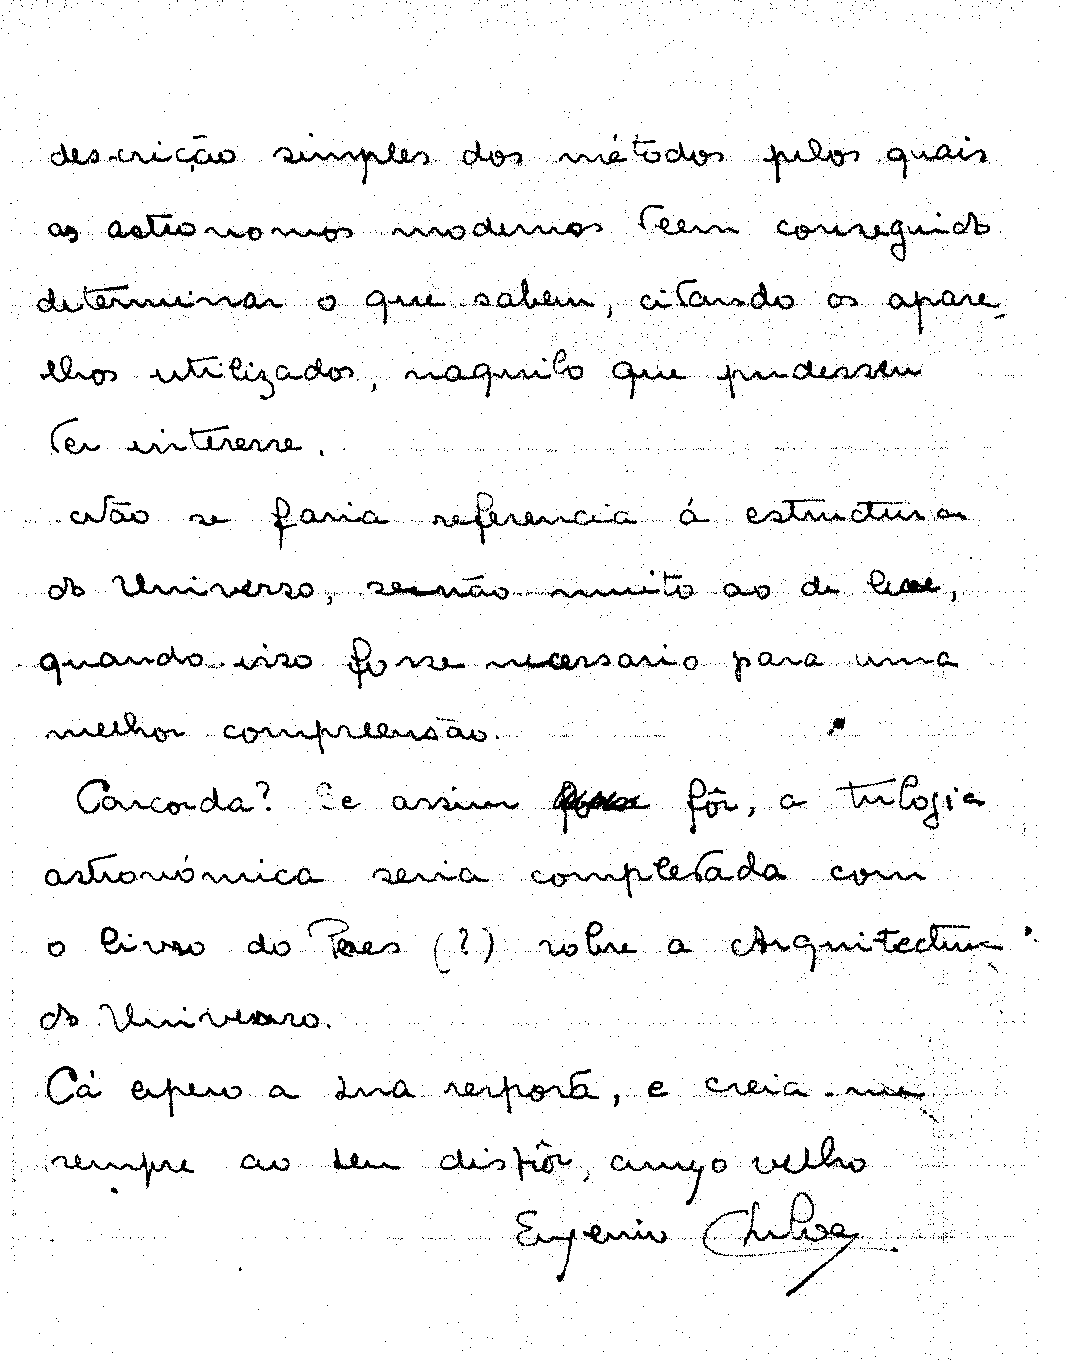 descrição simples dos métodos pelos quais
os astronomos modernos teem conseguido
determinar o que sabem, citando os apare-
lhos utilizados, naquilo que pudessem
ter interesse.
Não se faria referencia á estructura
do Universo, senão muito ao de leve,
quando isso fosse necessario para uma
melhor compreensão.
Concorda? Se assim fôr, a trilogia
astronómica seria completada com
o livro do Paes (?) sobre a Arquitectura
do Universo.
Cá espero a sua resposta, e creia-me
sempre ao seu dispôr, amigo velho
Eugenio